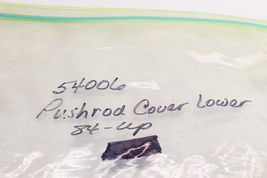 54006
Pushrod Cover Lower
84-up